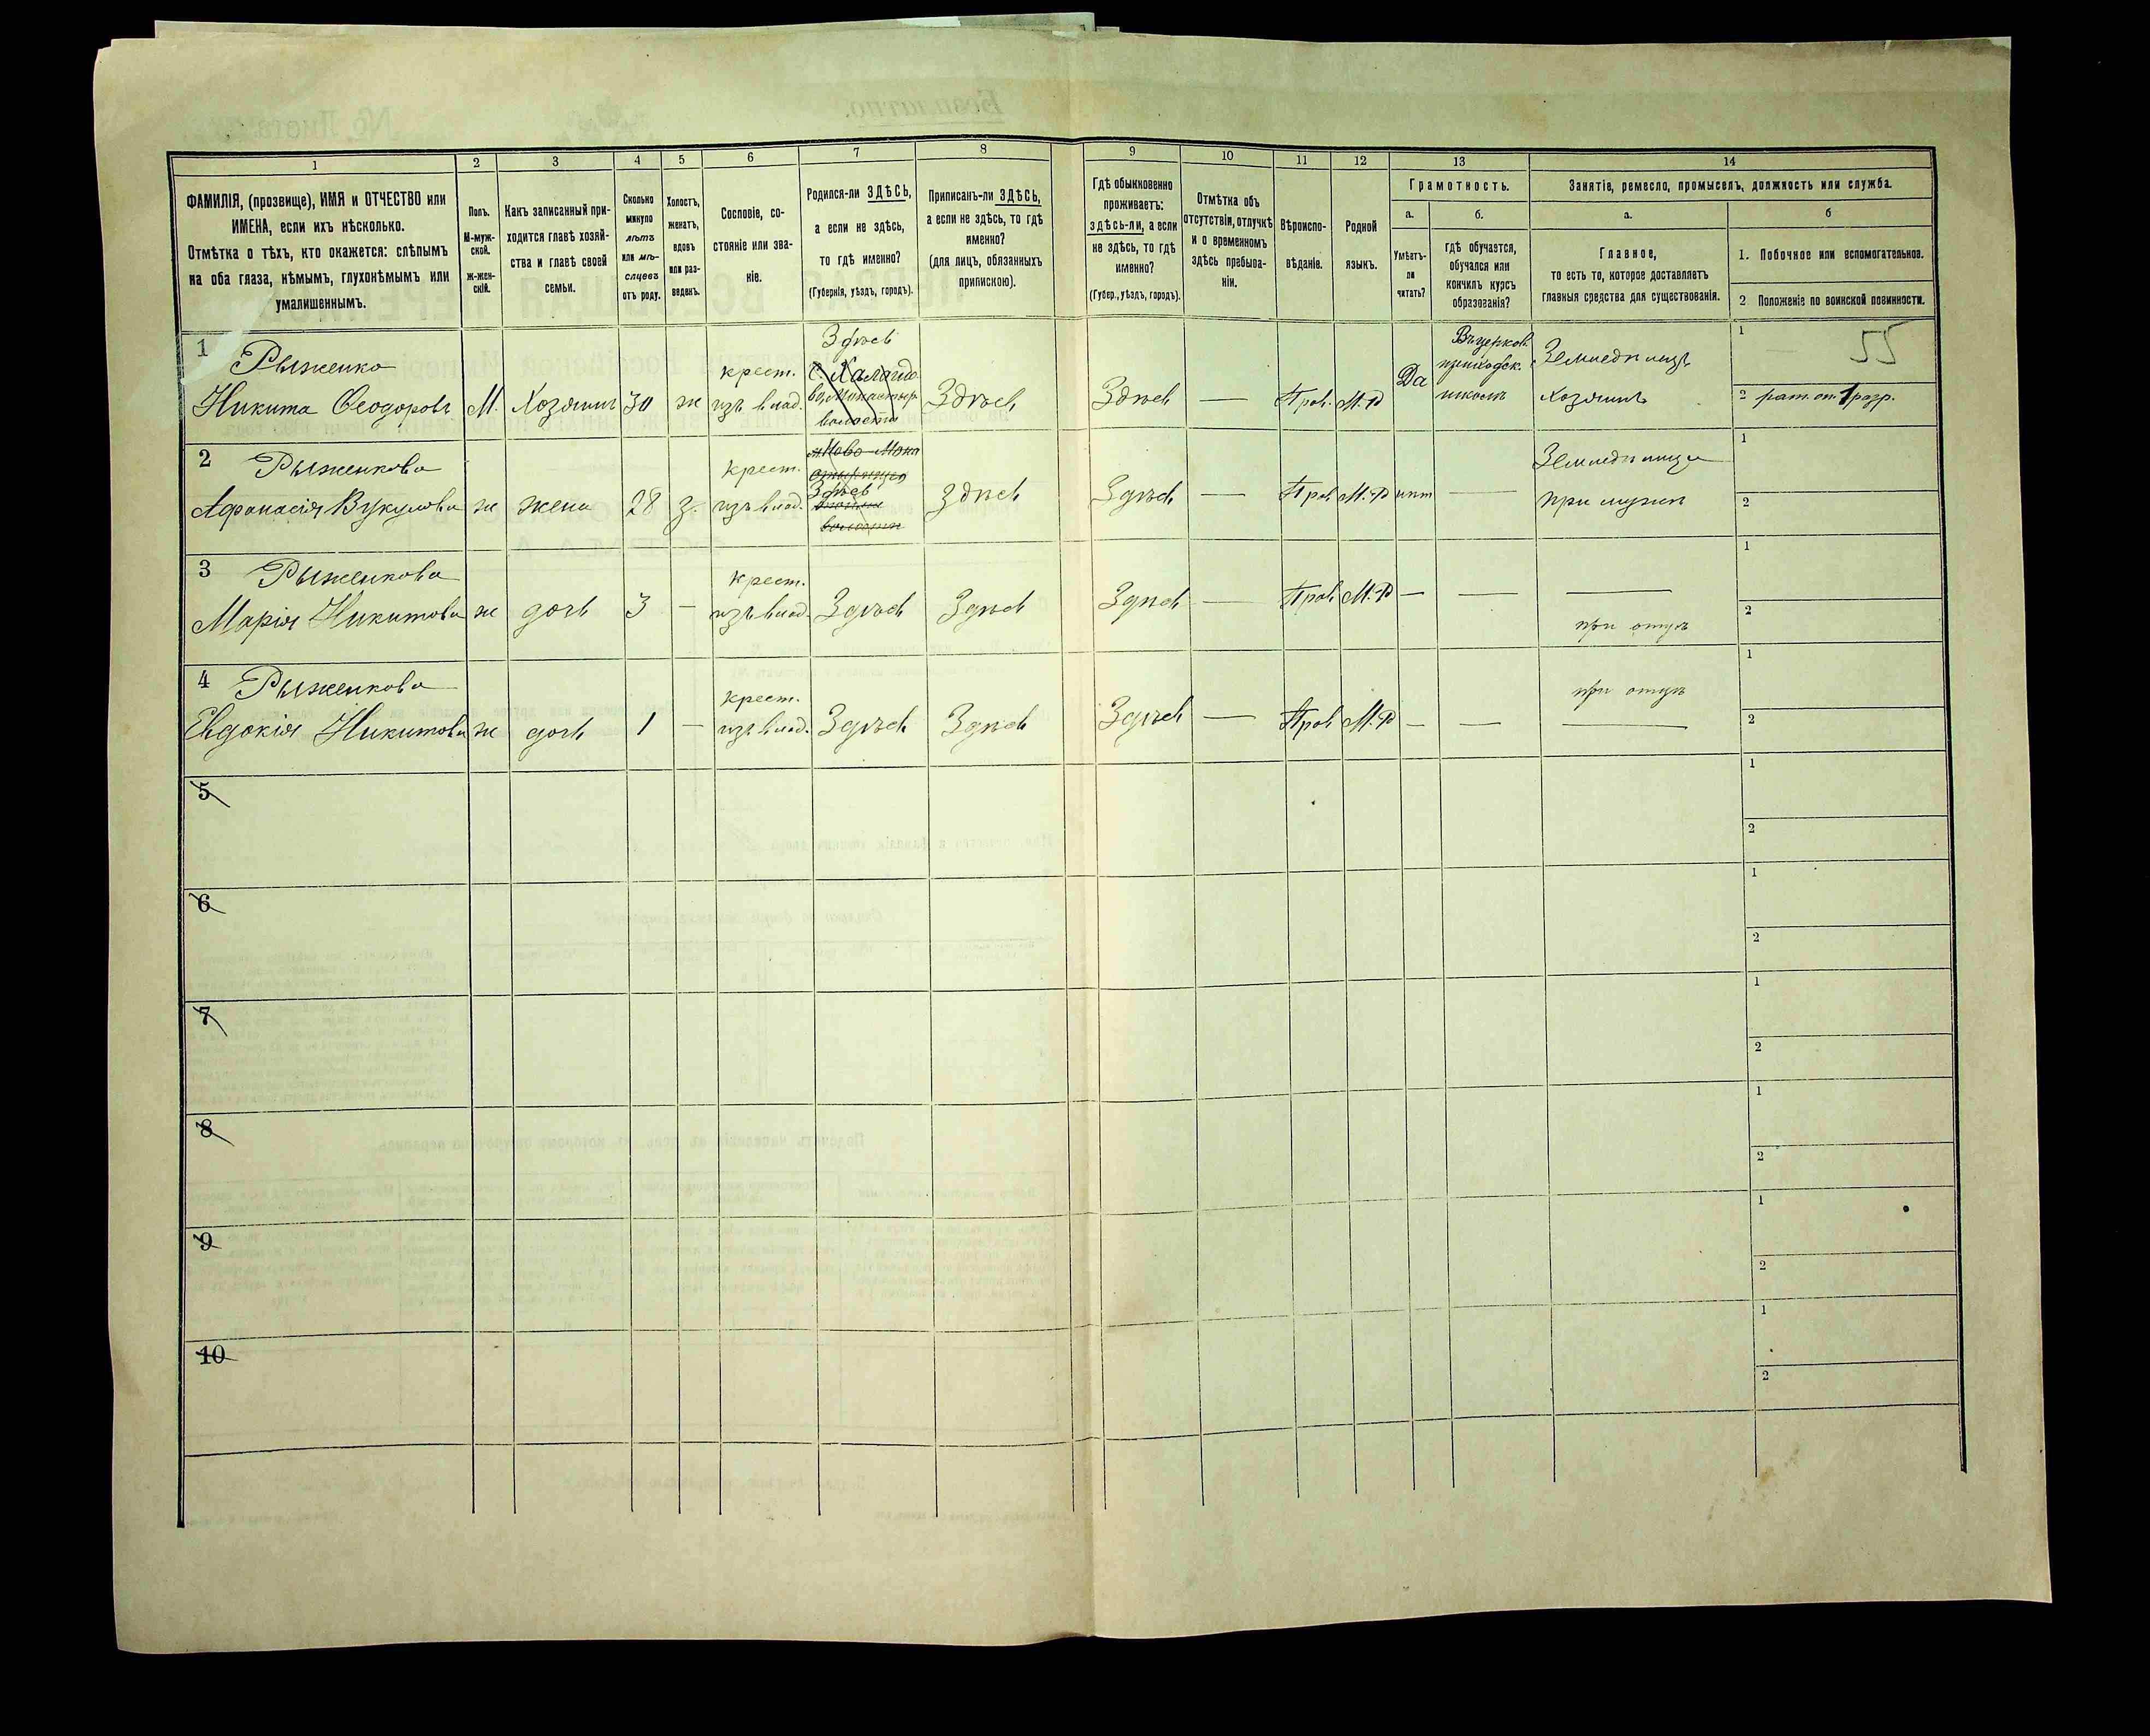 1
2
3
4
5
6
7
8
9
10
11
12
13
14
ФАМИЛІЯ, (прозвище), ИМЯ и ОТЧЕСТВО или
ИМЕНА, если ихъ нѣсколько.
Отмѣтка о тѣхъ, кто окажется: слѣпымъ
на оба глаза, нѣмымъ, глухонѣмымъ или
умалишеннымъ.
Полъ.
М-муж-
ской.
Ж-жен-
скій.
Какъ записанный при-
ходится главѣ хозяй-
ства и главѣ своей
семьи.
Сколько
минуло
лѣтъ
или мѣ-
сяцевъ
отъ роду.
Холостъ,
женатъ,
вдовъ
или раз-
веденъ.
Сословіе, со-
стояніе или зва-
ніе.
Родился-ли ЗДѢСЬ,
а если не здѣсь,
то гдѣ именно?
(Губернія, уѣздъ, городъ).
Приписанъ-ли ЗДѢСЬ,
а если не здѣсь, то гдѣ
именно?
(для лицъ, обязанныхъ
припискою).
Гдѣ обыкновенно
проживаетъ:
здѣсь-ли, а если
не здѣсь, то гдѣ
именно?
(Губер., уѣздъ, городъ).
Отмѣтка объ
отсутствіи, отлучкѣ
и о временномъ
здѣсь пребыва-
ніи.
Вѣроиспо-
вѣданіе.
Родной
языкъ.
Грамотность.
а.
б.
Умѣетъ-
ли
читать?
гдѣ обучается,
обучался или
кончилъ курсъ
образованія?
Занятіе, ремесло, промыселъ, должность или служба.
а.
б
Главное,
то есть то, которое доставляетъ
главныя средства для существованія.
1. Побочное или вспомогательное.
2 Положеніе по воинской повинности.
1 Рыженко
Никита Ѳеодоровъ
М.
Хозяинъ
30
ж
крест.
изъ влад.
Здѣсь
волости
Здѣсь
Здѣсь
—
Прав.
М.-Р
Да
Въ церков.
приходск.
школѣ
Земледѣлецъ
Хозяинъ
1 — 55
2 рат. оп. 1 разр.
2 Рыженкова
Афанасія Вукулова
ж
жена
28
з.
крест.
изъ влад.
Здѣсь
волости
Здѣсь
Здѣсь
—
Прав
М.-Р
нѣт
—
Земледѣлица
при мужѣ
1
2
3 Рыженкова
Марія Никитова
ж
дочь
3
—
крест.
изъ влад.
Здѣсь
Здѣсь
Здѣсь
—
Прав
М.-Р
—
—
—
при отцѣ
1
2
4 Рыженкова
Евдокія Никитова
ж
дочь
1
—
крест.
изъ влад.
Здѣсь
Здѣсь
Здѣсь
—
Прав
М.-Р
—
—
при отцѣ
—
1
2
5
1
2
6
1
2
7
1
2
8
1
2
9
1
2
10
1
2